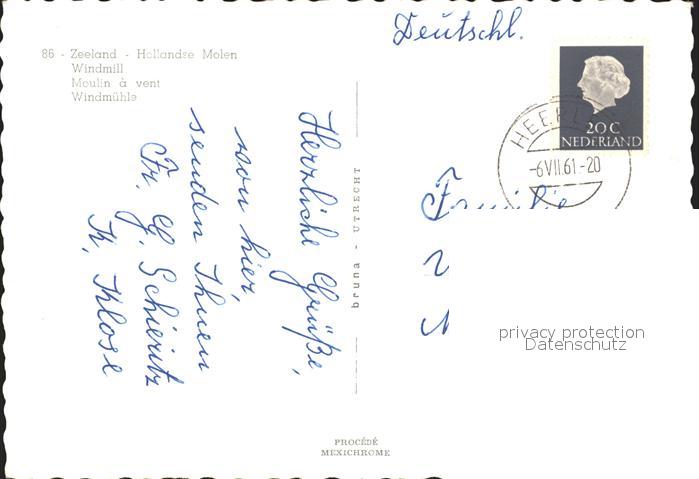 Deutschl.
86 - Zeeland - Hollandse Molen
Windmill
Moulin à vent
Windmühle
HEERL
20 C
NEDERLAND
-6 VII.61.-20
Herzliche Grüße,
von hier,
senden Ihnen
Fr. G. Schieritz
K. Klose
bruna - UTRECHT
Familie
privacy protection
Datenschutz
PROCÉDÉ
MEXICHROME